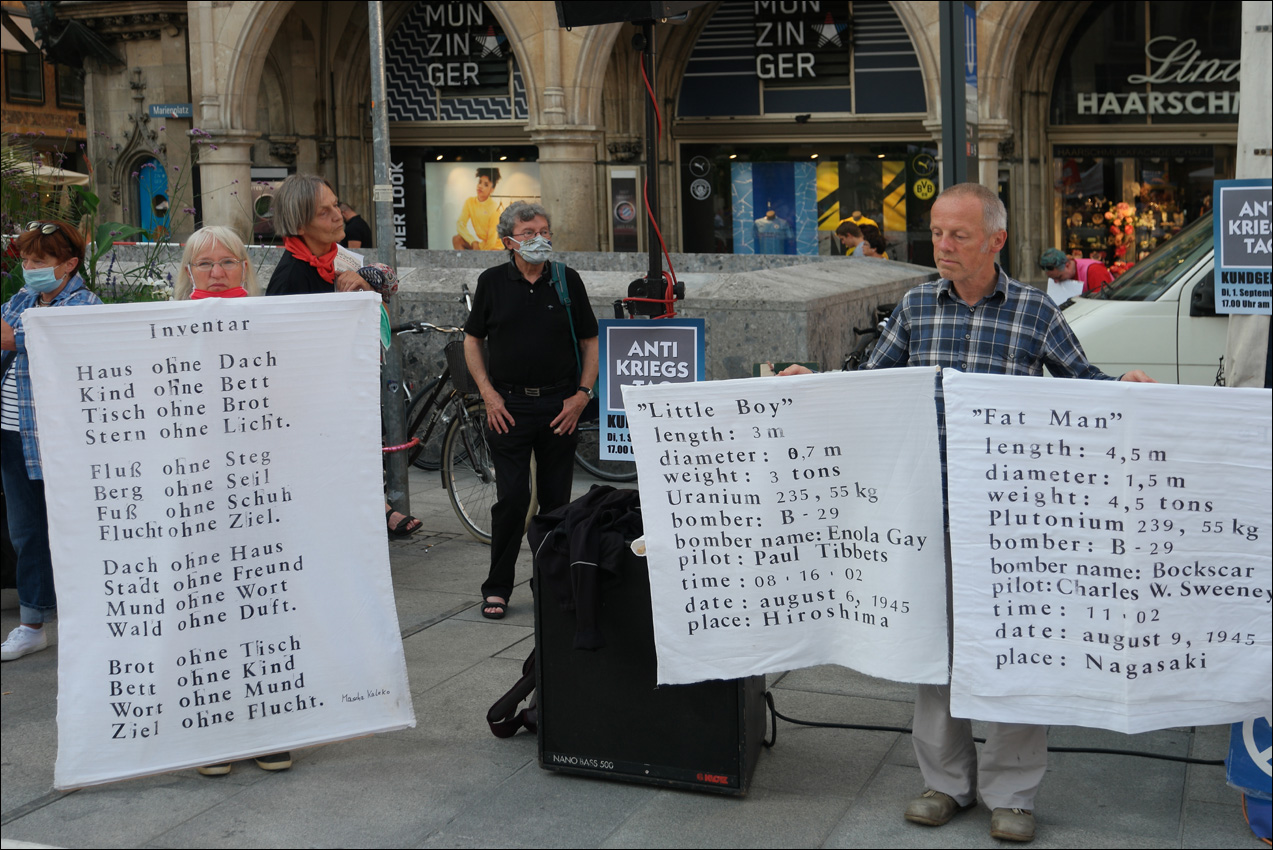 MÜN
ZIN
GER
MÜN
ZIN
GER
Marienplatz
HAARSCHM
MER LOOK
BVB
Inventar
Haus ohne Dach
Kind ohne Bett
Tisch ohne Brot
Stern ohne Licht.
Fluß ohne Steg
Berg ohne Seil
Fuß ohne Schuh
Flucht ohne Ziel.
Dach ohne Haus
Stadt ohne Freund
Mund ohne Wort
Wald ohne Duft.
Brot ohne Tisch
Bett ohne Kind
Wort ohne Mund
Ziel ohne Flucht.
Mascha Kaléko
ANTI
KRIEGS
TAG
KUN
Di, 1. S
17.00 U
"Little Boy"
length: 3 m
diameter: 0,7 m
weight: 3 tons
Uranium 235, 55 kg
bomber: B-29
bomber name: Enola Gay
pilot: Paul Tibbets
time: 08·16·02
date: august 6, 1945
place: Hiroshima
"Fat Man"
length: 4,5 m
diameter: 1,5 m
weight: 4,5 tons
Plutonium 239, 55 kg
bomber: B-29
bomber name: Bockscar
pilot: Charles W. Sweeney
time: 11·02
date: august 9, 1945
place: Nagasaki
ANT
KRIEG
TAG
KUNDGE
Di, 1. Septem
17.00 Uhr am
NANO BASS 500